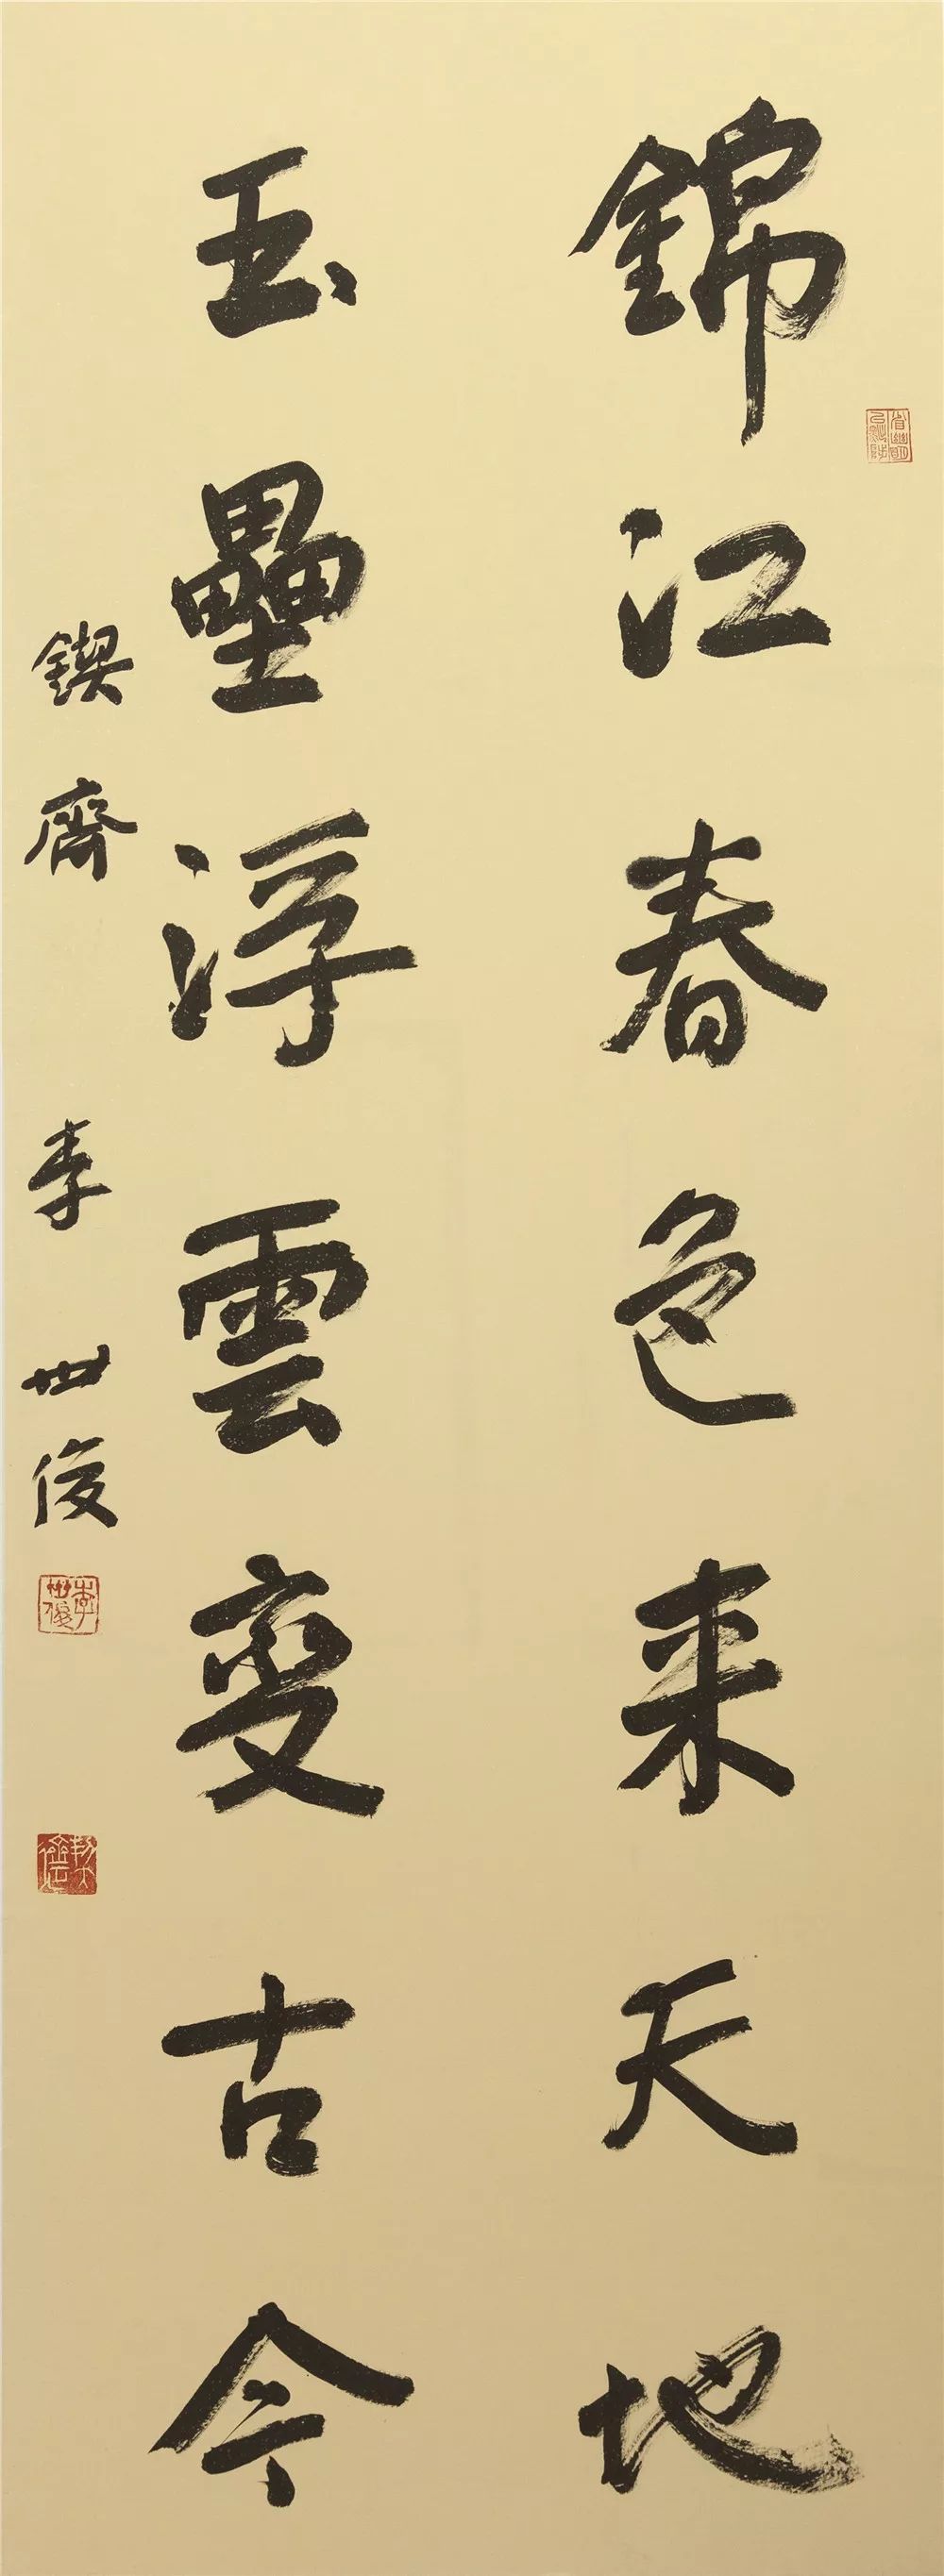 錦江春色来天地
玉壘浮雲变古今
鍥齋 李世俊
李世俊